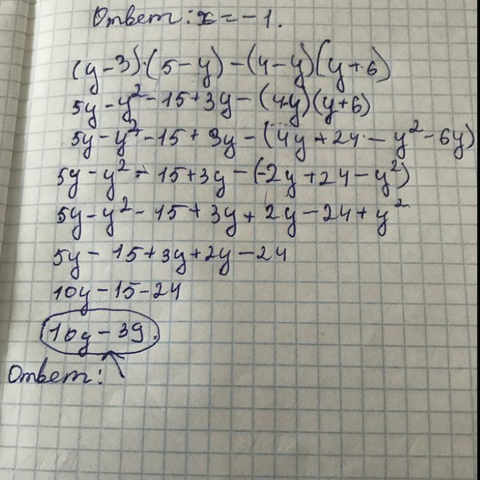 Ответ: x = -1.
(y-3)·(5-y)-(4-y)(y+6)
5y-y²-15+3y-(4-y)(y+6)
5y-y²-15+3y-(4y+24-y²-6y)
5y-y²-15+3y-(-2y+24-y²)
5y-y²-15+3y+2y-24+y²
5y-15+3y+2y-24
10y-15-24
10y-39.
Ответ: